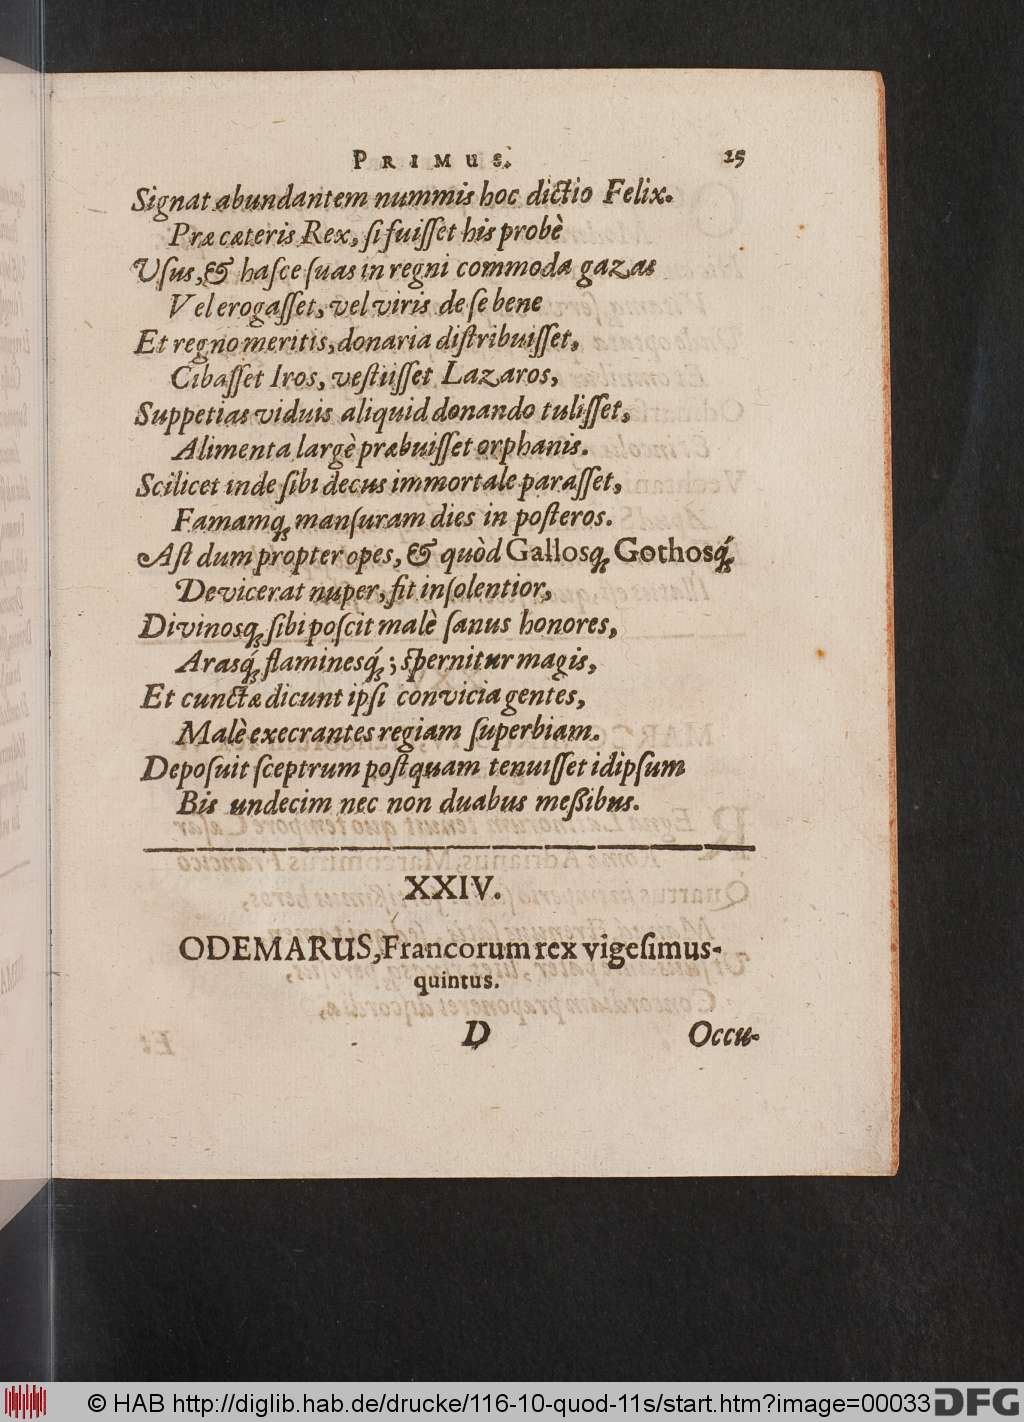 PRIMUS. 25
Signat abundantem nummis hoc dictio Felix.
Præ cæteris Rex, si fuisset his probè
Usus, & hasce suas in regni commoda gazas
Vel erogasset, vel viris de se bene
Et regno meritis, donaria distribuisset,
Cibasset Iros, vestiisset Lazaros,
Suppetias viduis aliquid donando tulisset,
Alimenta largè præbuisset orphanis.
Scilicet inde sibi decus immortale parasset,
Famamq; mansuram dies in posteros.
Ast dum propter opes, & quòd Gallosq; Gothosq́;
Devicerat nuper, fit insolentior,
Divinosq; sibi poscit malè sanus honores,
Arasq́; flaminesq́; ; spernitur magis,
Et cunctæ dicunt ipsi convicia gentes,
Malè execrantes regiam superbiam.
Deposuit sceptrum postquam tenuisset idipsum
Bis undecim nec non duabus meßibus.
XXIV.
ODEMARUS, Francorum rex vigesimus-
quintus.
D Occu-
© HAB http://diglib.hab.de/drucke/116-10-quod-11s/start.htm?image=00033 DFG